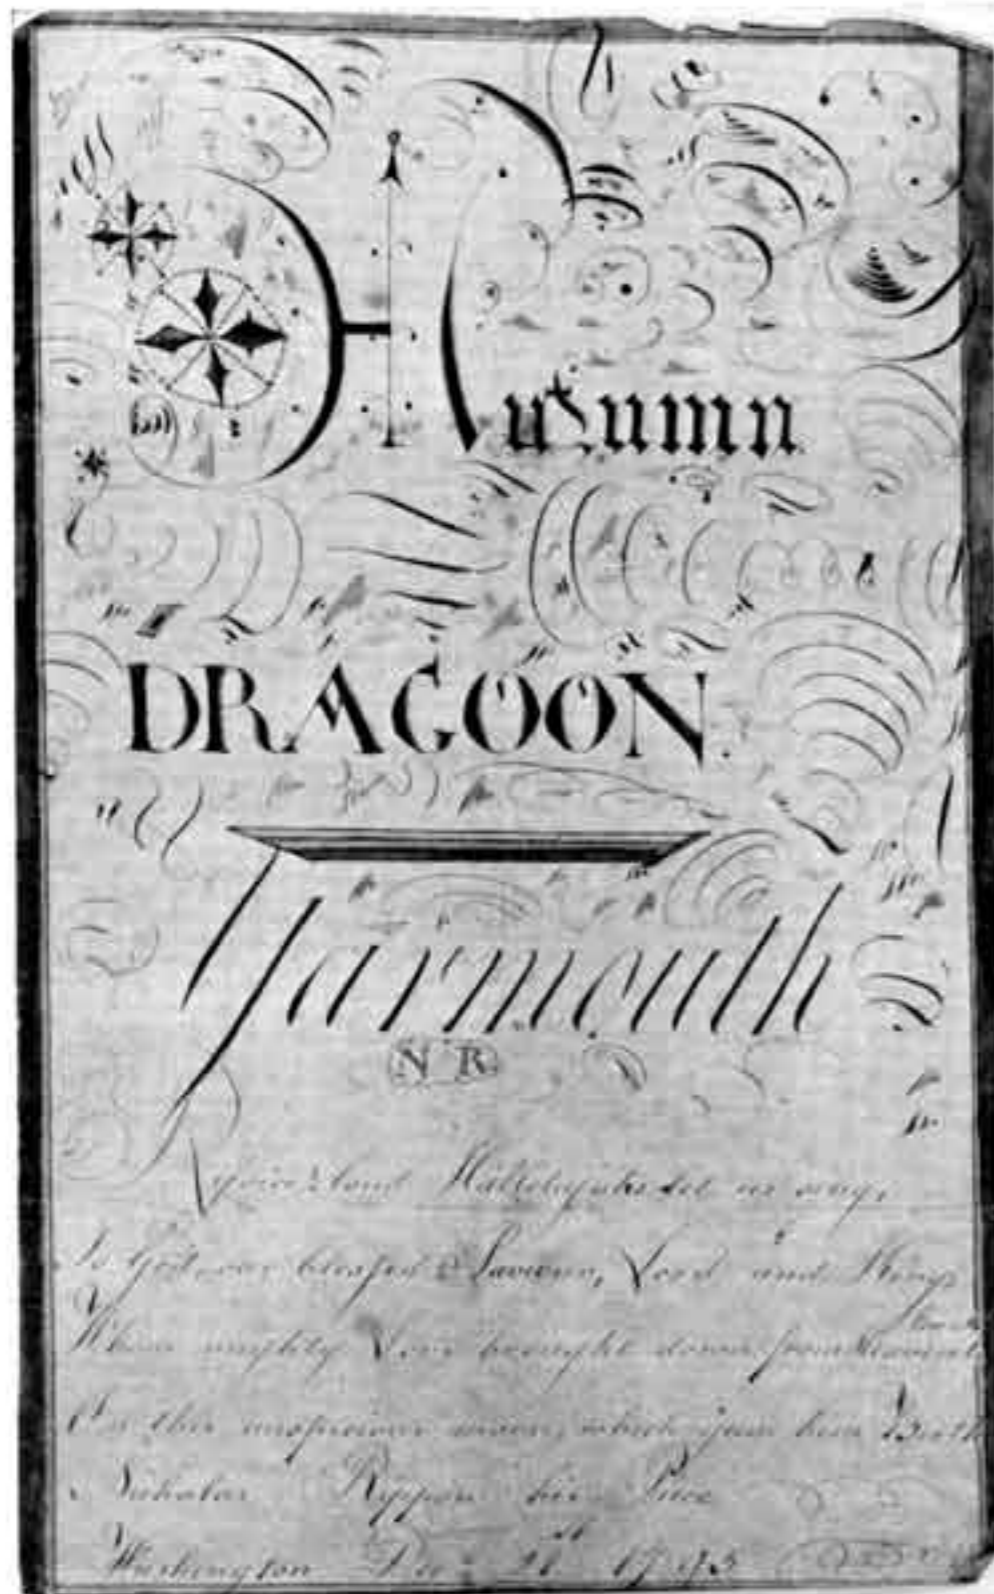 Autumn
DRAGOON.
Yarmouth
N R
loud Hallelujahs let us sing,
To God our blessed Saviour, Lord and King
Whose mighty Love brought down from Heaven
On this auspicious morn, which gave him Birth
Nicholas Rippon his Piece
Washington Dec 26